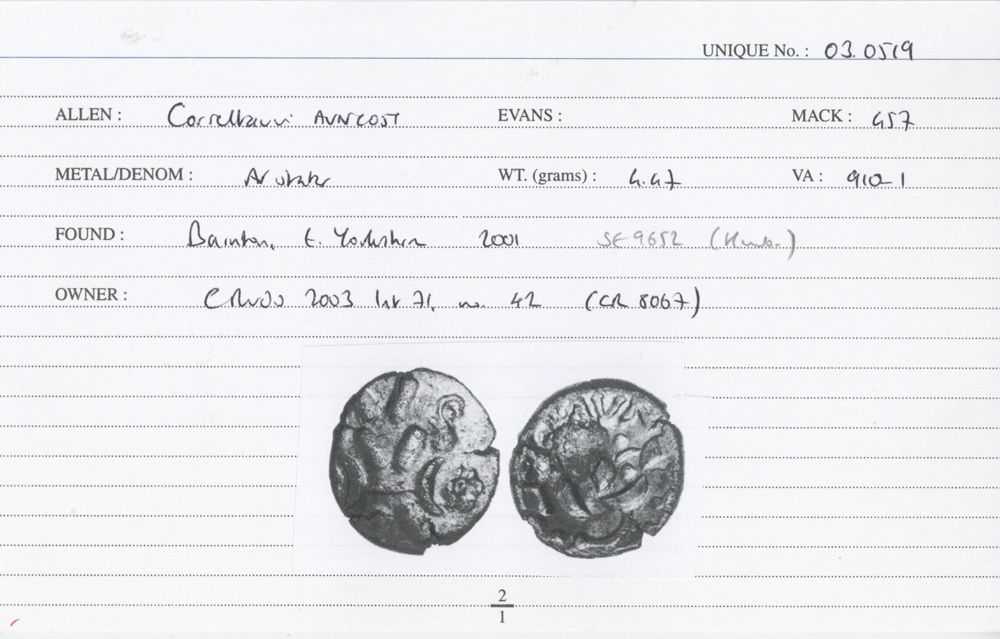 UNIQUE No. : 03.0519
ALLEN : Corieltauvi AVN COST EVANS : MACK : 457
METAL/DENOM : AV stater WT. (grams) : 4.47 VA : 910-1
FOUND : Bainton, E. Yorkshire 2001 SE 9652 (Humb.)
OWNER : 2003 71, no. 42 (CR 8067)
2
1